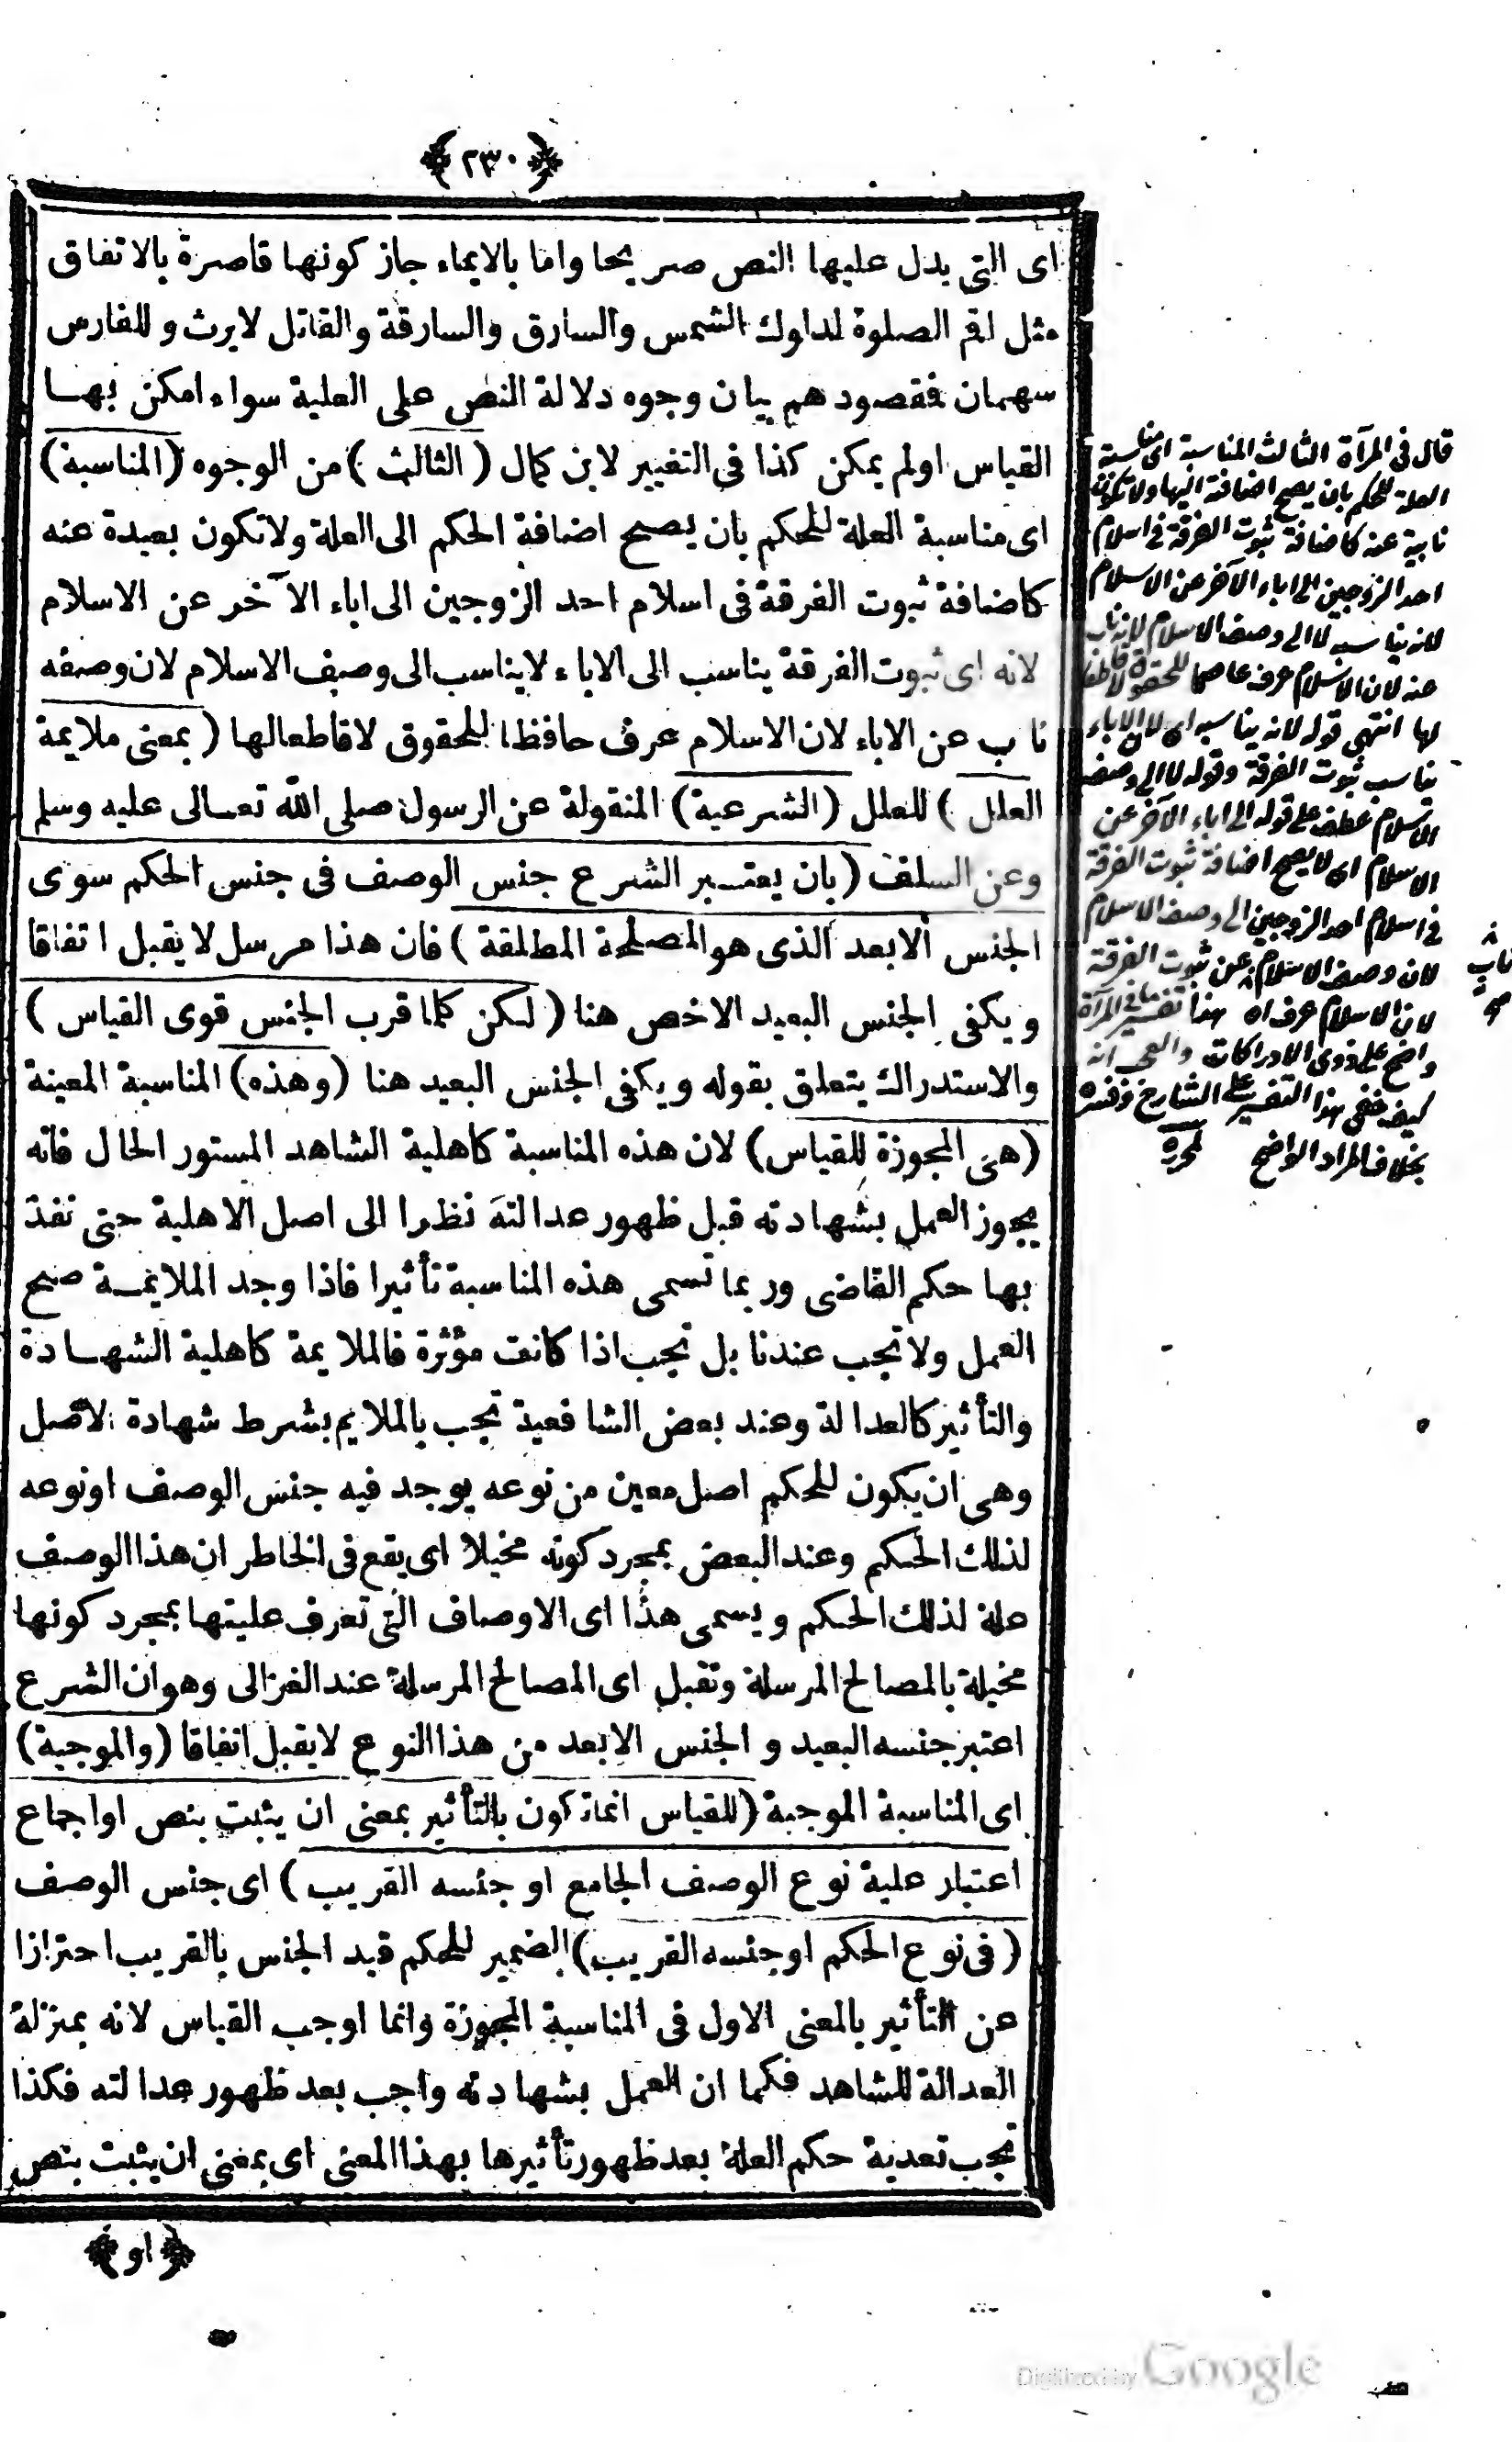 ﴿٢٣٠﴾
اى التى يدل عليها النص صريحا واما بالايماء جاز كونها قاصرة بالاتفاق
مثل اقم الصلوة لدلوك الشمس والسارق والسارقة والقاتل لايرث و للفارس
سهمان فقصودهم بيان وجوه دلالة النص على العلية سواء امكن بهـا
القياس اولم يمكن كذا فى التغيير لابن كمال ( الثالث ) من الوجوه (المناسبة)
اى مناسبة العلة للحكم بان يصح اضافة الحكم الى العلة ولاتكون بعيدة عنه
كاضافة ثبوت الفرقة فى اسلام احد الزوجين الى اباء الآخر عن الاسلام
لانه اى ثبوت الفرقة يناسب الى الاباء لايناسب الى وصف الاسلام لان وصفه
ناب عن الاباء لان الاسلام عرف حافظا للحقوق لاقاطعالها ( بمعنى ملايمة
العلل ) للعلل (الشرعية) المنقولة عن الرسول صلى الله تعـالى عليه وسلم
وعن السلف (بان يعتبر الشرع جنس الوصف فى جنس الحكم سوى
الجنس الابعد الذى هو المصلحة المطلقة ) فان هذا مرسل لايقبل اتفاقا
ويكفى الجنس البعيد الاخص هنا ( لكن كلما قرب الجنس قوى القياس )
والاستدراك يتعلق بقوله ويكفى الجنس البعيد هنا (وهذه) المناسبة المعينة
(هى المجوزة للقياس) لان هذه المناسبة كاهلية الشاهد المستور الحال فانه
يجوز العمل بشهادته قبل ظهور عدالته نظرا الى اصل الاهلية حتى نفذ
بها حكم القاضى وربما تسمى هذه المناسبة تأثيرا فاذا وجد الملايمـة صح
العمل ولاتجب عندنا بل تجب اذا كانت مؤثرة فالملايمة كاهلية الشهـادة
والتأثير كالعدالة وعند بعض الشافعية تجب بالملايم بشرط شهادة الاصل
وهى ان يكون للحكم اصل معين من نوعه يوجد فيه جنس الوصف اونوعه
لذلك الحكم وعند البعض بمجرد كونه مخيلا اى يقع فى الخاطر ان هذا الوصف
علة لذلك الحكم ويسمى هذا اى الاوصاف التى تعرف عليتها بمجرد كونها
مخيلة بالمصالح المرسلة وتقبل اى المصالح المرسلة عند الغزالى وهو ان الشرع
اعتبر جنسه البعيد و الجنس الابعد من هذا النوع لايقبل اتفاقا (والموجبة)
اى المناسبة الموجبة (للقياس انما تكون بالتأثير بمعنى ان يثبت بنص او اجماع
اعتبار علية نوع الوصف الجامع او جنسه القريب ) اى جنس الوصف
( فى نوع الحكم او جنسه القريب) الضمير للحكم قيد الجنس بالقريب احترازا
عن التأثير بالمعنى الاول فى المناسبة المجوزة وانما اوجب القياس لانه بمنزلة
العدالة للشاهد فكما ان العمل بشهادته واجب بعد ظهور عدالته فكذا
تجب تعدية حكم العلة بعد ظهور تأثيرها بهذا المعنى اى بمعنى ان يثبت بنص
﴿او﴾
قال فى المرآة الثالث المناسبة اى مناسبة
العلة للحكم بان يصح اضافته اليها ولا تكون
نابية عنه كاضافة ثبوت الفرقة فى اسلام
احد الزوجين الى اباء الآخر عن الاسلام
لانه يناسبه لا الى وصف الاسلام لانه ناب
عنه لان الاسلام عرف عاصما للحقوق لا قاطعا
لها انتهى قوله لانه يناسبه اى لان الاباء
يناسب ثبوت الفرقة وقوله لا الى وصف
الاسلام عطف على قوله الى اباء الآخر عن
الاسلام اى لا يصح اضافة ثبوت الفرقة
فى اسلام احد الزوجين الى وصف الاسلام
لان وصف الاسلام عن ثبوت الفرقة
ناب
لان الاسلام عرف اه هذا تفسير ما فى المرآة
واضح على ذوى الادراكات والعجب انه
كيف خفى هذا التفسير على الشارح وفسره
بخلاف المراد الواضح لمحرره
Digitized by Google